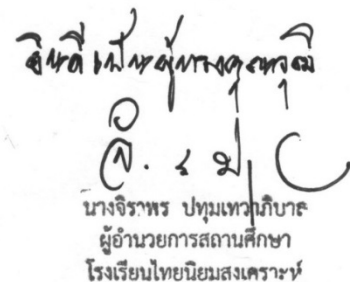 ยินดีเป็นผู้ทรงคุณวุฒิ
นางจิราพร ปทุมเทวาภิบาล
ผู้อำนวยการสถานศึกษา
โรงเรียนไทยนิยมสงเคราะห์